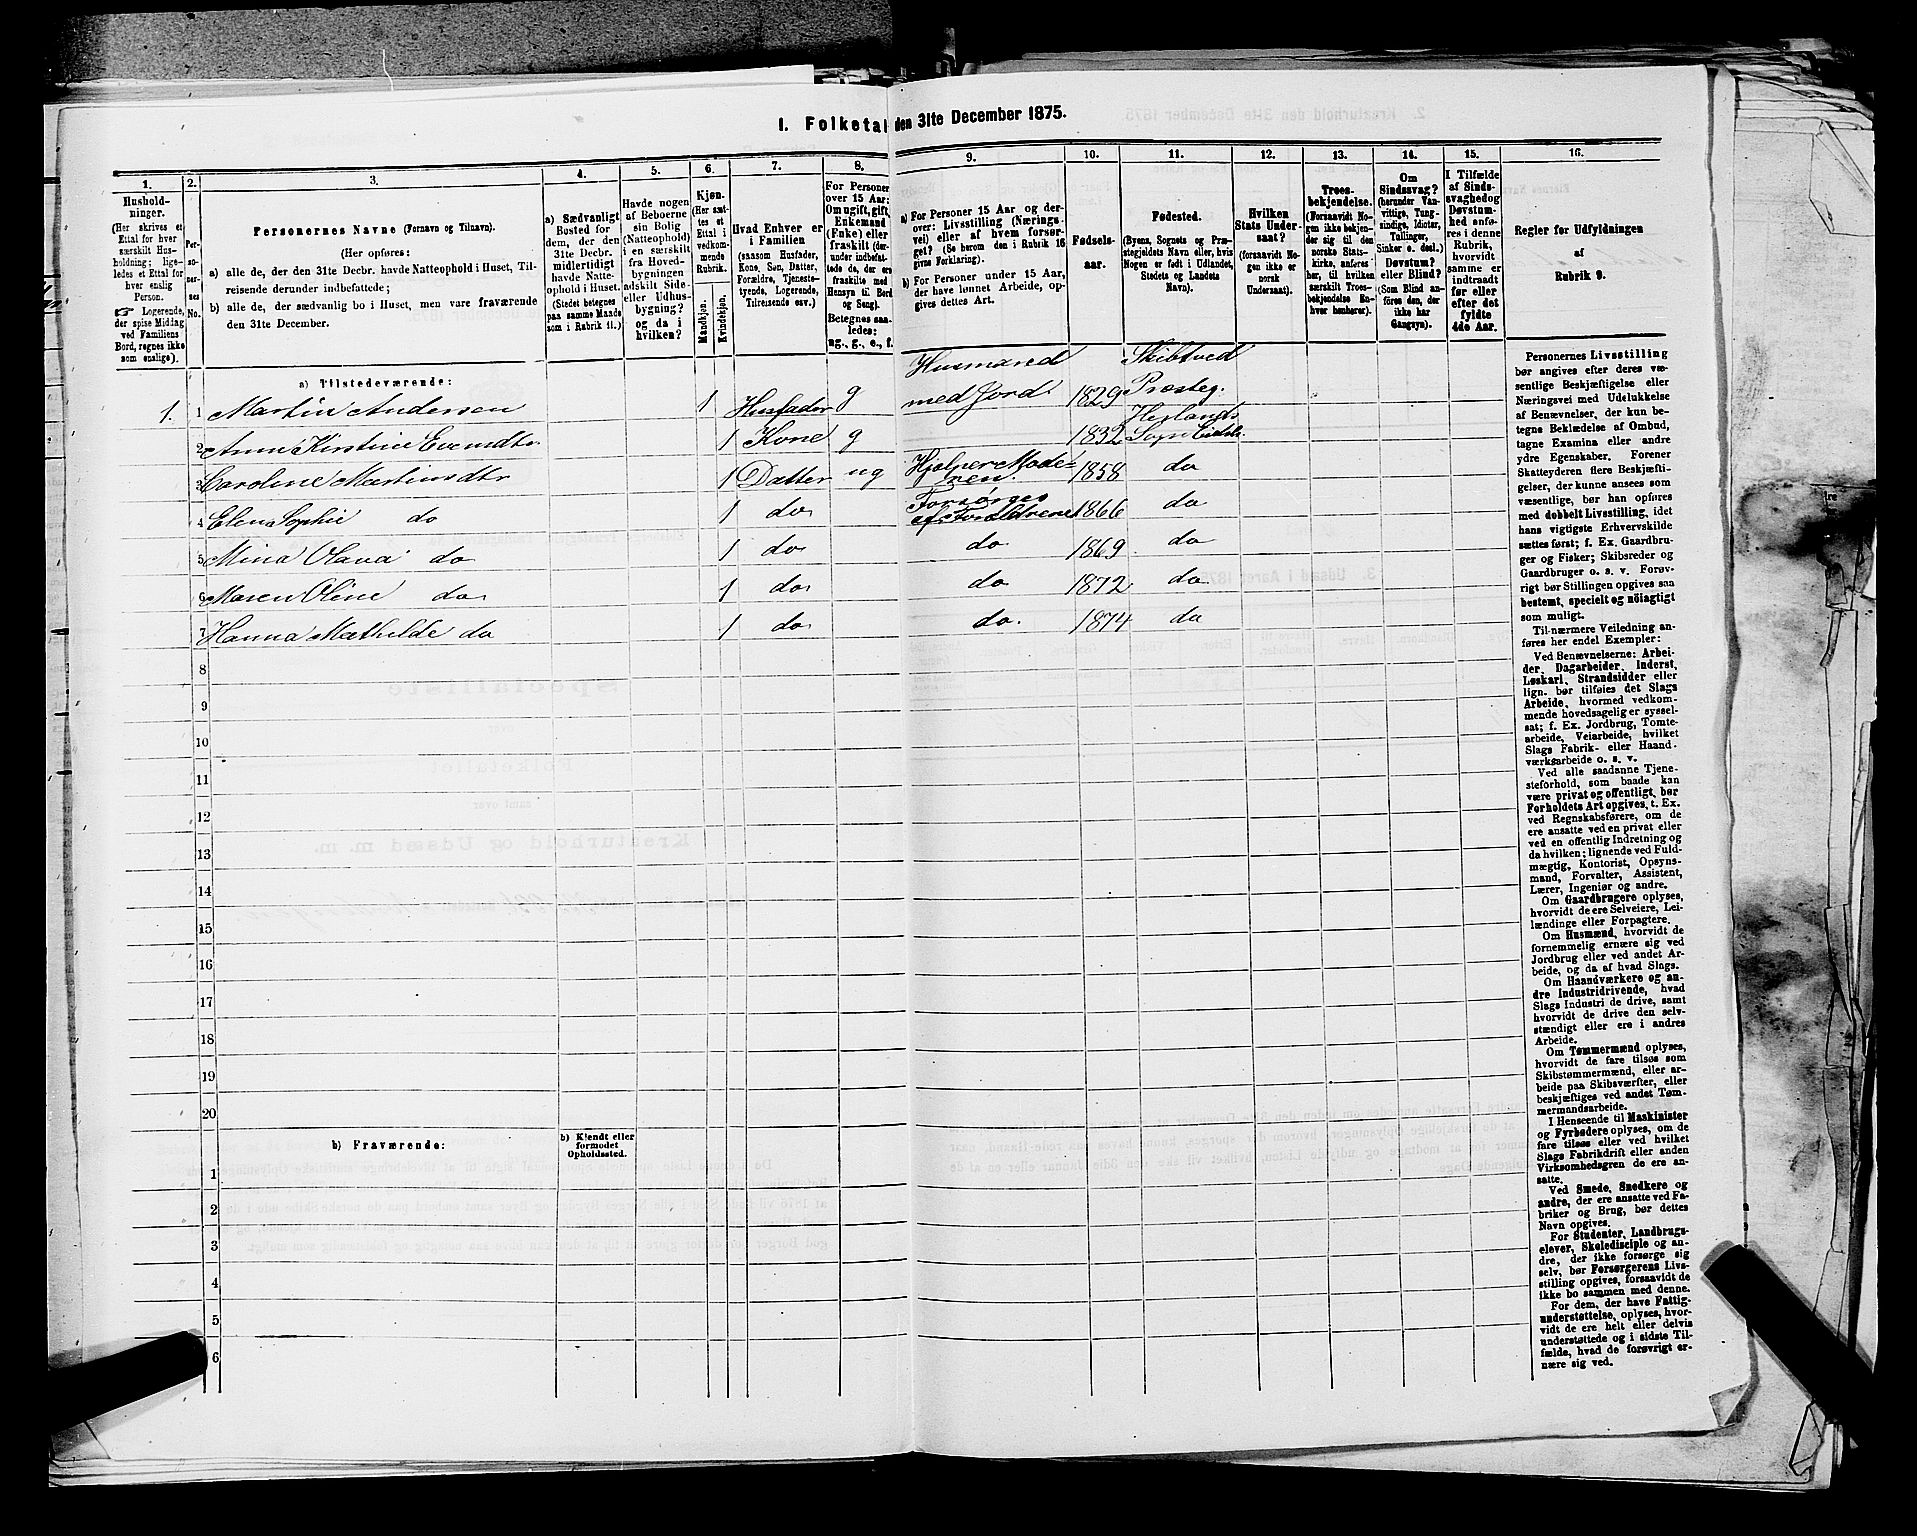 1. Folketal den 31te December 1875.
1. 2. 3. 4. 5. 6. 7. 8. 9. 10. 11. 12. 13. 14. 15. 16.
Husholdninger.
(Her skrives et
Ettal for hver
særskilt Husholdning;
ligeledes et Ettal for
hver enslig
Person.
Logerende,
der spise Middag
ved Familiens
Bord, regnes ikke
som enslige).
Personernes No.
Personernes Navne (Fornavn og Tilnavn).
(Her opføres:
a) alle de, der den 31te Decbr. havde Natteophold i Huset, Tilreisende derunder indbefattede;
b) alle de, der sædvanlig bo i Huset, men vare fraværende
den 31te December.
a) Sædvanligt
Bosted for
dem, der den
31te Decbr.
midlertidigt
havde Natteophold i Huset.
(Stedet betegnes
paa samme Maade
som i Rubrik 11.)
Havde nogen
af Beboerne
sin Bolig
(Natteophold)
i en særskilt
fra Hovedbygningen
adskilt Side- eller Udhusbygning?
og da i
hvilken?
Kjøn.
(Her sættes et
Ettal i
vedkommende
Rubrik.
Mandkjøn. Kvindekjøn.
Hvad Enhver er
i Familien
(saasom Husfader,
Kone, Søn, Datter,
Forældre, Tjenestetyende, Logerende,
Tilreisende osv.)
For Personer
over 15 Aar:
Om ugift, gift,
Enkemand
(Enke) eller
fraskilt (derunder indbefattede de, der ere
fraskilte med
Hensyn til Bord
og Seng).
Betegnes saaledes:
ug., g., e., f.
a) For Personer 15 Aar og derover: Livsstilling (Næringsvei) eller af hvem forsørget? (Se herom den i Rubrik 16
givne Forklaring).
b) For Personer under 15 Aar,
der have lønnet Arbeide, opgives dettes Art.
Fødselsaar.
Fødested.
(Byens, Sognets og Præstegjeldets Navn, eller, hvis
Nogen er født i Udlandet,
Stedets og Landets
Navn).
Hvilken
Stats Undersaat?
(forsaavidt Nogen ikke er
norsk
Undersaat).
Troesbekjendelse.
(Forsaavidt Nogen ikke bekjender sig til den
norske Statskirke, anføres
her, til hvilken
særskilt Troesbekjendelse Enhver henhører).
Om
Sindssvag?
(herunder Vanvittige, Tungsindige, Idioter,
Tullinger,
Sinker o. desl.)
Døvstum?
eller Blind?
(Som Blind anføres den, der
ikke har
Gangsyn).
I Tilfælde
af Sindssvaghed og
Døvstumhed anføres i denne
Rubrik,
hvorvidt
samme er
indtraadt
før eller
efter det
fyldte
4de Aar.
Regler før Udfyldningen
af
Rubrik 9.
a) Tilstedeværende:
1. 1 Martin Andersen 1 Husfader g Husmand med Jord 1829 Skibtved Præsteg.
2 Anne Kirstine Evensdtr 1 Kone g 1832 Sogn Eidsb.
3 Caroline Martinsdtr 1 Datter ug Hjelper Moderen. 1858 do
4 Elen Sophie do 1 do Forsørges af Forældrene 1866 do
5 Mina Olava do 1 do do 1869 do
6 Maren Oline do 1 do do 1872 do
7 Hanna Mathilde do 1 do do. 1874 do
8
9
10
11
12
13
14
15
16
17
18
19
20
b) Fraværende:
b) Kjendt eller
formodet
Opholdssted.
1
2
3
4
5
6
Personernes Livsstilling
bør angives efter deres væsentlige Beskjæftigelse eller
Næringsvei med Udelukkelse
af Benævnelser, der kun betegne Beklædelse af Ombud,
tagne Examina eller andre
ydre Egenskaber. Forener
Skatteyderen flere Beskjæftigelser, der kunne ansees som
væsentlige, bør han opføres
med dobbelt Livsstilling, idet
hans vigtigste Erhvervskilde
sættes først; f. Ex. Gaardbruger og Fisker; Skibsreder og
Gaardbruger o. s. v. Forøvrigt bør Stillingen opgives saa
bestemt, specielt og nöiagtigt
som muligt.
Til nærmere Veiledning anføres her endel Exempler:
Ved Benævnelserne: Arbeider, Dagarbeider, Inderst,
Løskarl, Strandsidder eller
lign. bør tilføies det Slags
Arbeide, hvormed vedkommende hovedsagelig er sysselsat; f. Ex. Jordbrug, Tomtearbeide, Veiarbeide, hvilket
Slags Fabrik- eller Haandværksarbeide o. s. v.
Ved alle saadanne Tjenesteforhold, som baade kan
være privat og offentligt, bør
Forholdets Art opgives, t. Ex.
ved Regnskabsførere, om de
ere ansatte ved en privat eller
ved en offentlig Indretning og
da hvilken; lignende ved Fuldmægtig, Kontorist, Opsynsmand, Forvalter, Assistent,
Lærer, Ingeniør og andre.
Om Gaardbrugere oplyses,
hvorvidt de ere Selveiere, Leilændinge eller Forpagtere.
Om Husmænd, hvorvidt de
fornemmelig ernære sig ved
Jordbrug eller ved andet Arbeide, og da af hvad Slags.
Om Haandværkere og andre Industridrivende, hvad
Slags Industri de drive, samt
hvorvidt de drive den selvstændigt eller ere i andres
Arbeide.
Om Tømmermænd oplyses,
hvorvidt de fare tilsøs som
Skibstømmermænd, eller arbeide paa Skibsværfter, eller
beskjæftiges ved andet Tømmermandsarbeide.
I Henseende til Maskinister
og Fyrbødere oplyses, om de
fare tilsøs eller ved hvilket
Slags Fabrikdrift eller anden
Virksomhedsgren de ere ansatte.
Ved Smede, Snedkere og
andre, der ere ansatte ved Fabriker og Brug, bør dettes
Navn opgives.
For Studenter, Landbrugselever, Skoledisciple og andre, der ikke forsørge sig
selv, bør Forsørgerens Livsstilling opgives, forsaavidt de
ikke bo sammen med denne.
For dem, der have Fattigunderstøttelse, oplyses, hvorvidt de ere helt eller delvis
understøttede og i sidste Tilfælde, hvad de forøvrigt ernære sig ved.